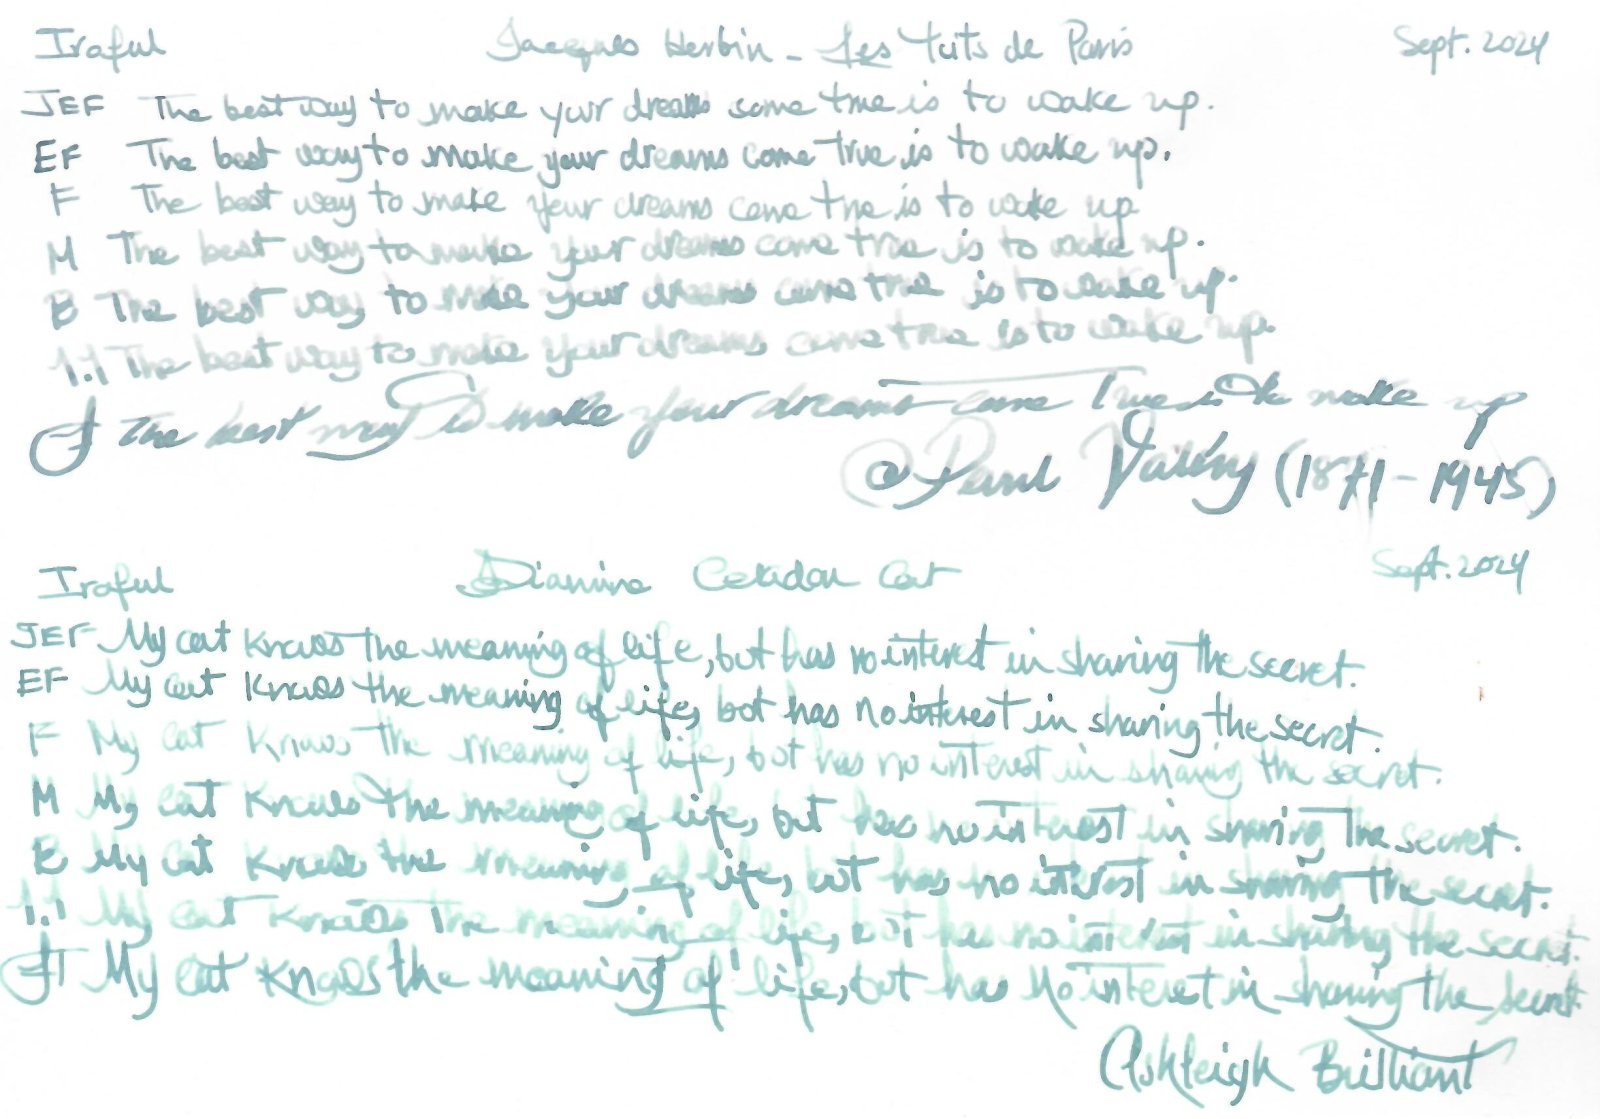 Iroful Jacques Herbin - Les Toits de Paris Sept. 2024
JEF The best way to make your dreams come true is to wake up.
EF The best way to make your dreams come true is to wake up.
F The best way to make your dreams come true is to wake up
M The best way to make your dreams come true is to wake up.
B The best way to make your dreams come true is to wake up.
1.1 The best way to make your dreams come true is to wake up.
The best way to make your dreams come true is to wake up
Paul Valéry (1871-1945)
Iroful Diamine Celadon Cat Sept. 2024
JEF My cat knows the meaning of life, but has no interest in sharing the secret.
EF My cat knows the meaning of life, but has no interest in sharing the secret.
F My cat knows the meaning of life, but has no interest in sharing the secret.
M My cat knows the meaning of life, but has no interest in sharing the secret.
B My cat knows the meaning of life, but has no interest in sharing the secret.
1.1 My cat knows the meaning of life, but has no interest in sharing the secret.
My cat knows the meaning of life, but has no interest in sharing the secret.
Ashleigh Brilliant